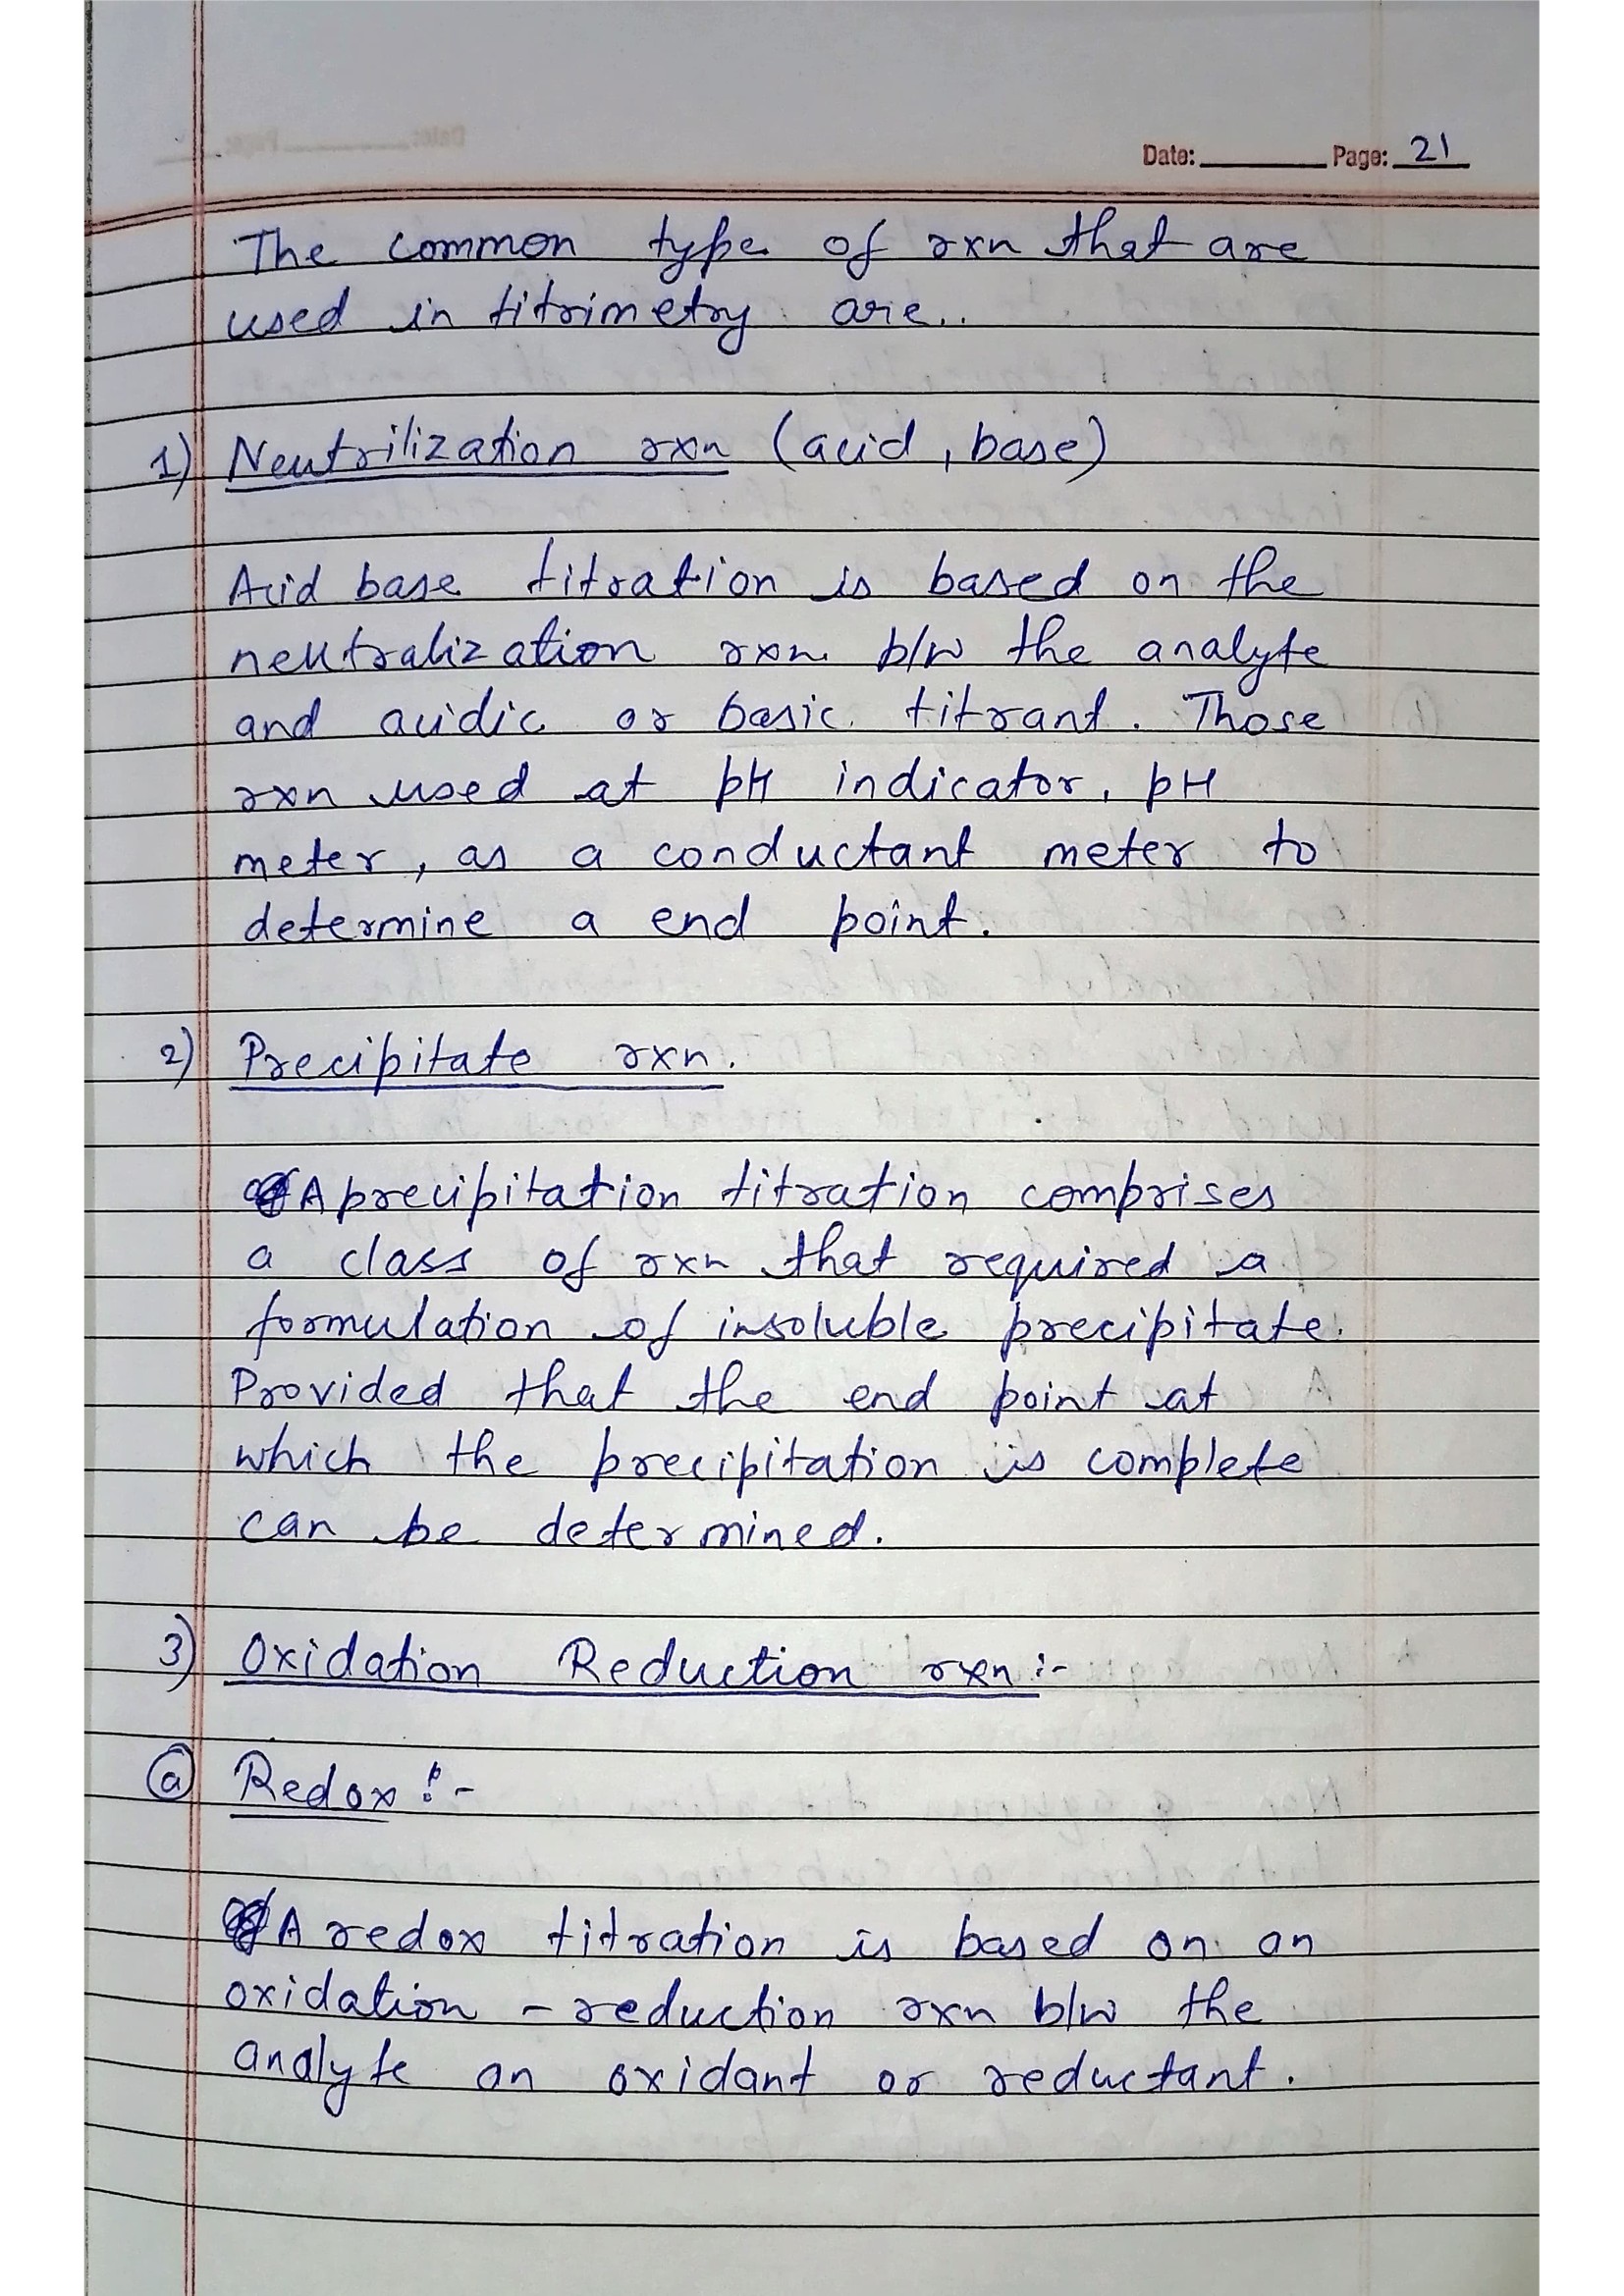 Date: Page: 21
The common type of rxn that are
used in titrimetry are..
1) Neutrilization rxn (acid, base)
Acid base titration is based on the
neutralization rxn b/w the analyte
and acidic or basic titrant. Those
rxn used at pH indicator, pH
meter, as a conductant meter to
determine a end point.
2) Precipitate rxn.
A precipitation titration comprises
a class of rxn that required a
formulation of insoluble precipitate.
Provided that the end point at
which the precipitation is complete
can be determined.
3) Oxidation Reduction rxn :-
(a) Redox :-
A redox titration is based on an
oxidation - reduction rxn b/w the
analyte an oxidant or reductant.